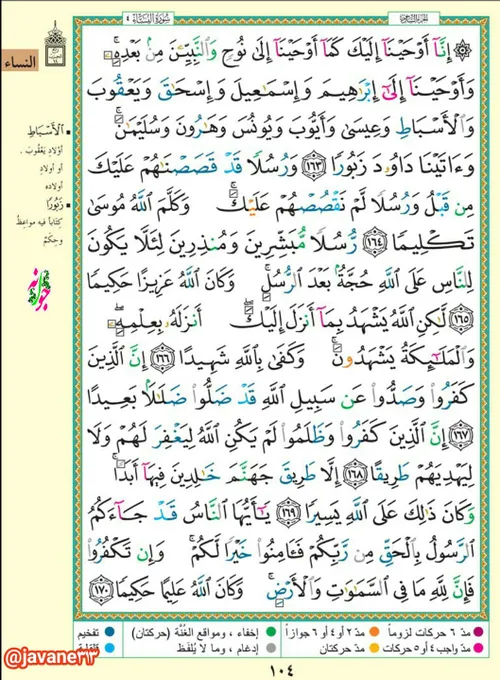 سُورَةُ النِّسَاءِ ٤
النساء
۞ إِنَّآ أَوْحَيْنَآ إِلَيْكَ كَمَآ أَوْحَيْنَآ إِلَىٰ نُوحٍ وَٱلنَّبِيِّـۧنَ مِنۢ بَعْدِهِۦۚ
وَأَوْحَيْنَآ إِلَىٰٓ إِبْرَٰهِيمَ وَإِسْمَٰعِيلَ وَإِسْحَٰقَ وَيَعْقُوبَ
وَٱلْأَسْبَاطِ وَعِيسَىٰ وَأَيُّوبَ وَيُونُسَ وَهَٰرُونَ وَسُلَيْمَٰنَۚ
وَءَاتَيْنَا دَاوُۥدَ زَبُورًا ١٦٣ وَرُسُلًا قَدْ قَصَصْنَٰهُمْ عَلَيْكَ
مِن قَبْلُ وَرُسُلًا لَّمْ نَقْصُصْهُمْ عَلَيْكَۚ وَكَلَّمَ ٱللَّهُ مُوسَىٰ
تَكْلِيمًا ١٦٤ رُّسُلًا مُّبَشِّرِينَ وَمُنذِرِينَ لِئَلَّا يَكُونَ
لِلنَّاسِ عَلَى ٱللَّهِ حُجَّةٌۢ بَعْدَ ٱلرُّسُلِۚ وَكَانَ ٱللَّهُ عَزِيزًا حَكِيمًا
١٦٥ لَّٰكِنِ ٱللَّهُ يَشْهَدُ بِمَآ أَنزَلَ إِلَيْكَۖ أَنزَلَهُۥ بِعِلْمِهِۦۖ
وَٱلْمَلَٰٓئِكَةُ يَشْهَدُونَۚ وَكَفَىٰ بِٱللَّهِ شَهِيدًا ١٦٦ إِنَّ ٱلَّذِينَ
كَفَرُوا۟ وَصَدُّوا۟ عَن سَبِيلِ ٱللَّهِ قَدْ ضَلُّوا۟ ضَلَٰلًۢا بَعِيدًا
١٦٧ إِنَّ ٱلَّذِينَ كَفَرُوا۟ وَظَلَمُوا۟ لَمْ يَكُنِ ٱللَّهُ لِيَغْفِرَ لَهُمْ وَلَا
لِيَهْدِيَهُمْ طَرِيقًا ١٦٨ إِلَّا طَرِيقَ جَهَنَّمَ خَٰلِدِينَ فِيهَآ أَبَدًاۚ
وَكَانَ ذَٰلِكَ عَلَى ٱللَّهِ يَسِيرًا ١٦٩ يَٰٓأَيُّهَا ٱلنَّاسُ قَدْ جَآءَكُمُ
ٱلرَّسُولُ بِٱلْحَقِّ مِن رَّبِّكُمْ فَـَٔامِنُوا۟ خَيْرًا لَّكُمْۚ وَإِن تَكْفُرُوا۟
فَإِنَّ لِلَّهِ مَا فِى ٱلسَّمَٰوَٰتِ وَٱلْأَرْضِۚ وَكَانَ ٱللَّهُ عَلِيمًا حَكِيمًا ١٧٠
ٱلْأَسْبَاطِ
أولاد يعقوب .
أو أولادِ
أولاده
زَبُورًا
كتابًا فيه مواعظُ
وحِكمٌ
مدّ ٦ حركات لزوماً
مدّ ٢ أو ٤ أو ٦ جوازاً
إخفاء ، ومواقع الغُنَّة (حركتان)
تفخيم
مدّ واجب ٤ أو ٥ حركات
مدّ حركتان
إدغام ، وما لا يُلفَظ
قلقلة
@javane٢٣
١٠٤